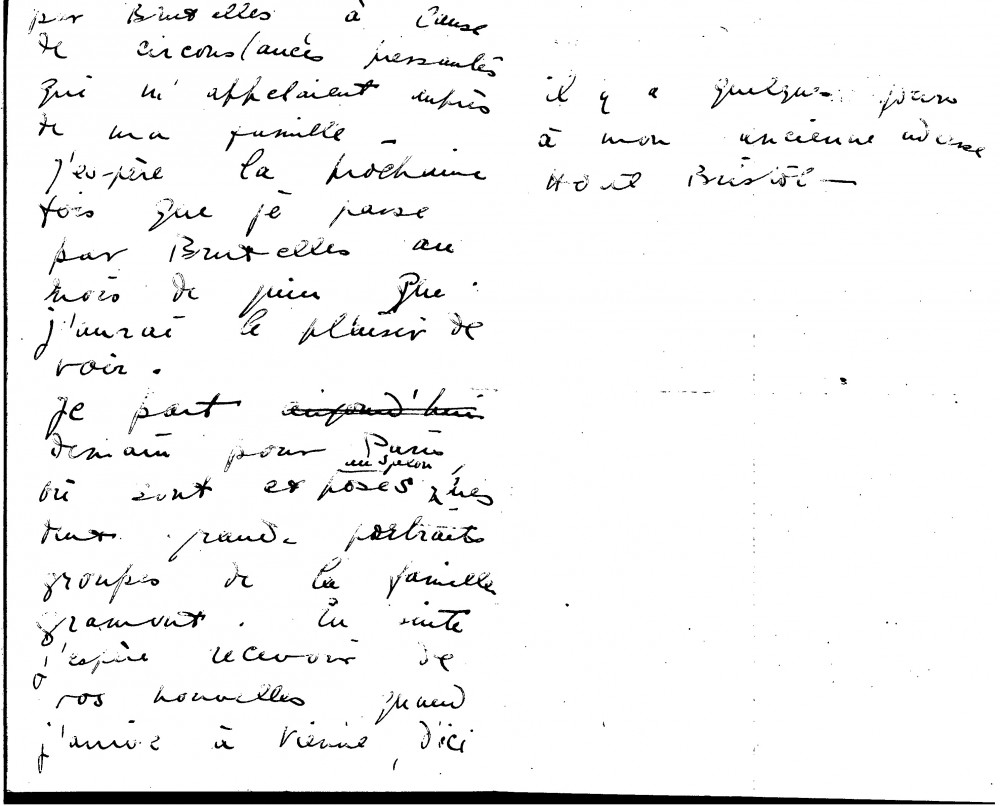 par Bruxelles à Cause
de circonstances pressantes
qui m'appelaient auprès
de ma famille -
J'espère la prochaine
fois que je passe
par Bruxelles au
mois de juin que
j'aurai le plaisir de
voir.
Je part aujourd'hui
demain pour Paris,
au Salon
où sont exposés mes
deux grands portraits
groupes de la famille
gramont. En suite
j'espère recevoir de
vos nouvelles quand
j'arrive à Vienne, d'ici
il y a quelques jours
à mon ancienne adresse
Hotel Bristol -